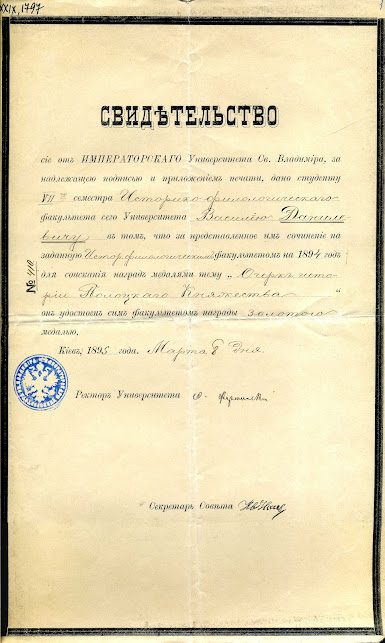 XXIX, 1797
СВИДѢТЕЛЬСТВО
сіе отъ ИМПЕРАТОРСКАГО Университета Св. Владиміра, за
надлежащею подписью и приложеніемъ печати, дано студенту
VII го семестра Историко-филологическаго
факультета сего Университета Василію Даниле-
вичу въ томъ, что за представленное имъ сочиненіе на
заданную Истор.филологическимъ факультетомъ на 1894 годъ
для соисканія наградъ медалями тему „Очеркъ исто-
ріи Полоцкаго Княжества“
онъ удостоенъ симъ факультетомъ награды золотою
медалью.
№
Кіевъ, 1895 года. Марта 8 дня.
Ректоръ Университета
Секретарь Совѣта